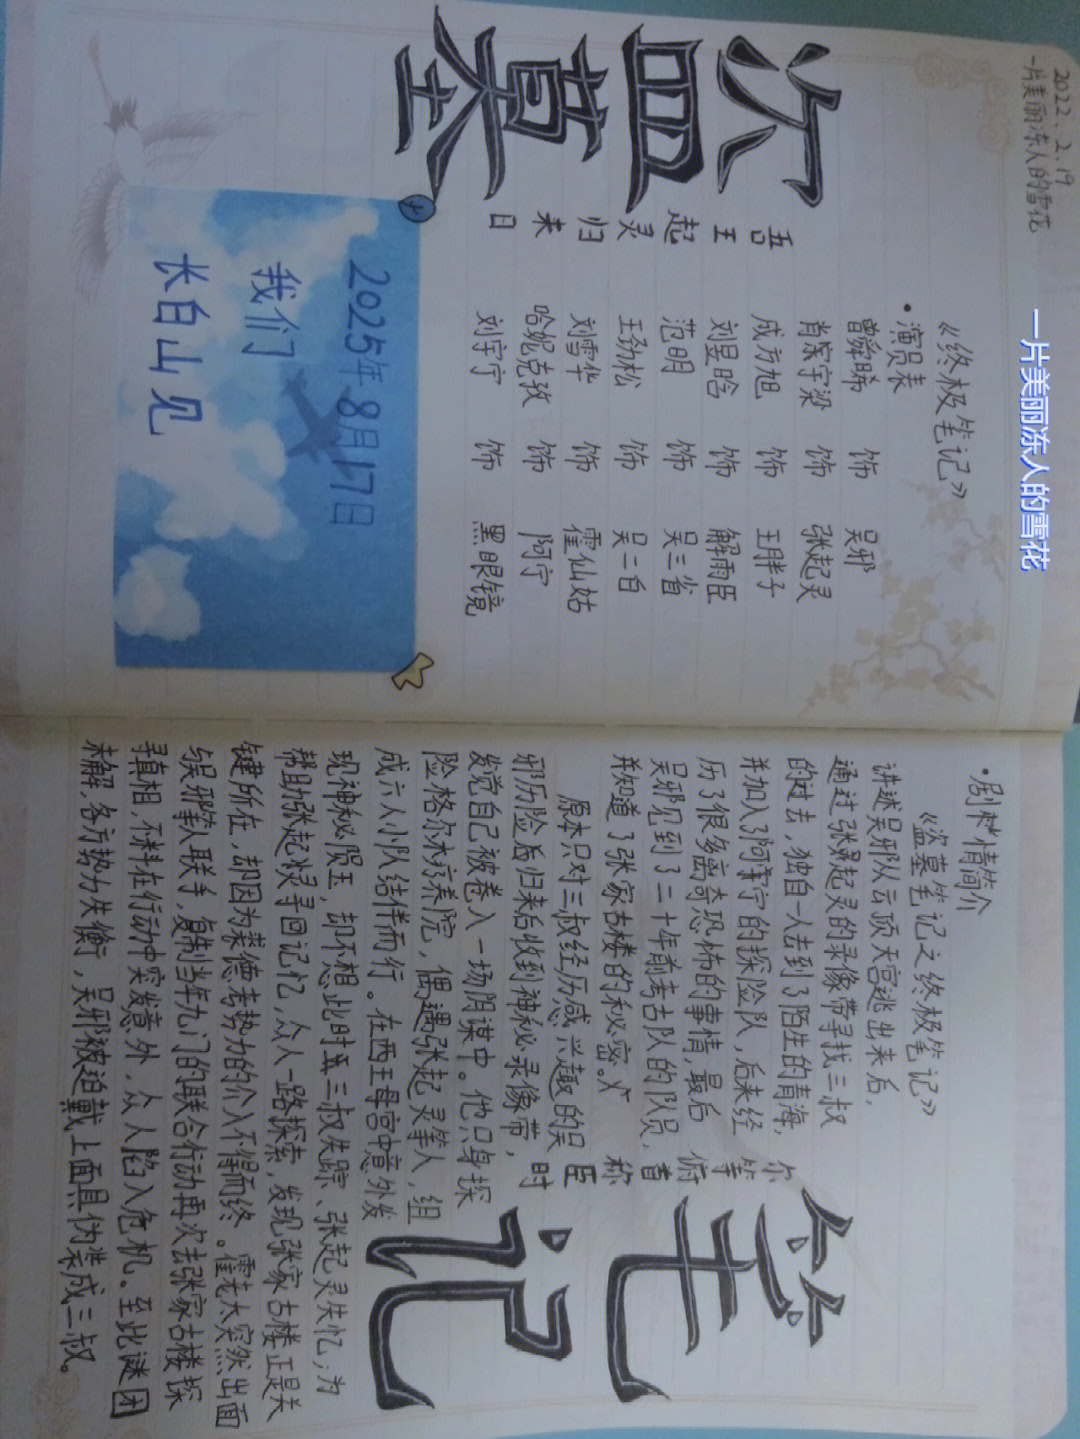 2022.2.19
一片美丽冻人的雪花
一片美丽冻人的雪花
盗墓
《终极笔记》
·演员表
曾舜晞 饰 吴邪
肖宇梁 饰 张起灵
成方旭 饰 王胖子
刘昱晗 饰 解雨臣
范明 饰 吴三省
王劲松 饰 吴二白
刘雪华 饰 霍仙姑
哈妮克孜 饰 阿宁
刘宇宁 饰 黑眼镜
吾王起灵归来日
2025年8月17日
我们
长白山见
笔记
尔等俯首称臣时
·剧情简介
《盗墓笔记之终极笔记》
讲述吴邪从云顶天宫逃出来后,
通过张起灵的录像带寻找三叔
的过去,独自一人去到了陌生的青海,
并加入了阿宁的探险队,后来经
历了很多离奇恐怖的事情,最后
吴邪见到了二十年前考古队的队员,
并知道了张家古楼的秘密。
原本只对三叔经历感兴趣的吴
邪历险后归来后收到神秘录像带,
发觉自己被卷入一场阴谋中。他只身探
险格尔木疗养院,偶遇张起灵等人,组
成六人小队结伴而行。在西王母宫中意外发
现神秘陨玉,却不想此时三叔失踪、张起灵失忆,为
帮助张起灵寻回记忆,众人一路探索,发现张家古楼正是关
键所在,却因为裘德考势力的介入不得而终。霍老太突然出面
与吴邪等人联手,复制当年九门的联合行动再次去张家古楼探
寻真相,不料在行动中突发意外,众人陷入危机。至此谜团
未解,各方势力失衡,吴邪被迫戴上面具伪装成三叔。